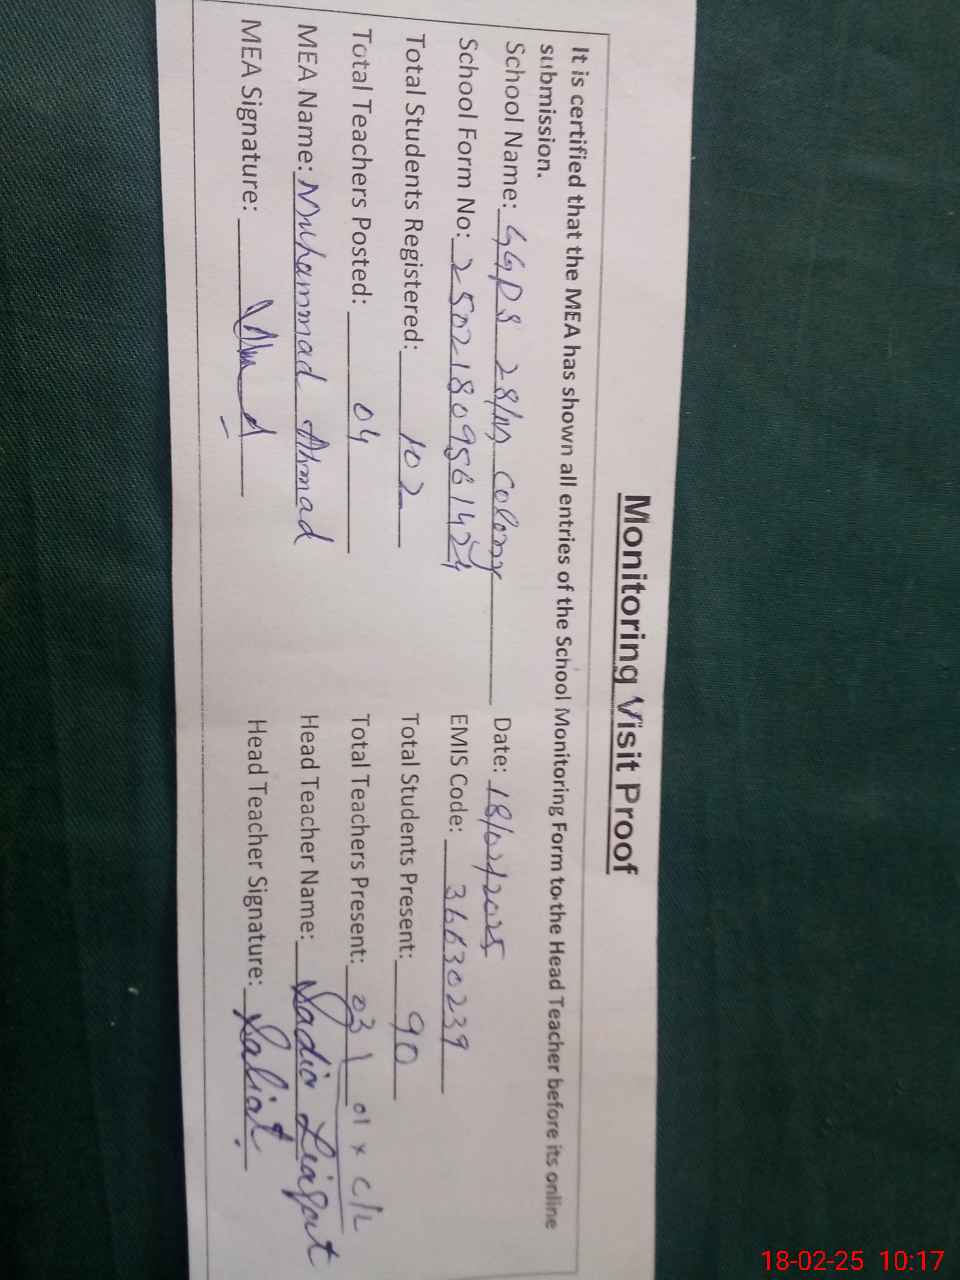 Monitoring Visit Proof
It is certified that the MEA has shown all entries of the School Monitoring Form to the Head Teacher before its online
submission.
School Name: GGPS 28/ Colony Date: 18/02/2025
School Form No: 25021809561424 EMIS Code: 36630239
Total Students Registered: 102 Total Students Present: 90
Total Teachers Posted: 04 Total Teachers Present: 03 | 01 x C/L
MEA Name: Muhammad Ahmad Head Teacher Name: Sadia Liaqat
MEA Signature: Head Teacher Signature:
18-02-25 10:17